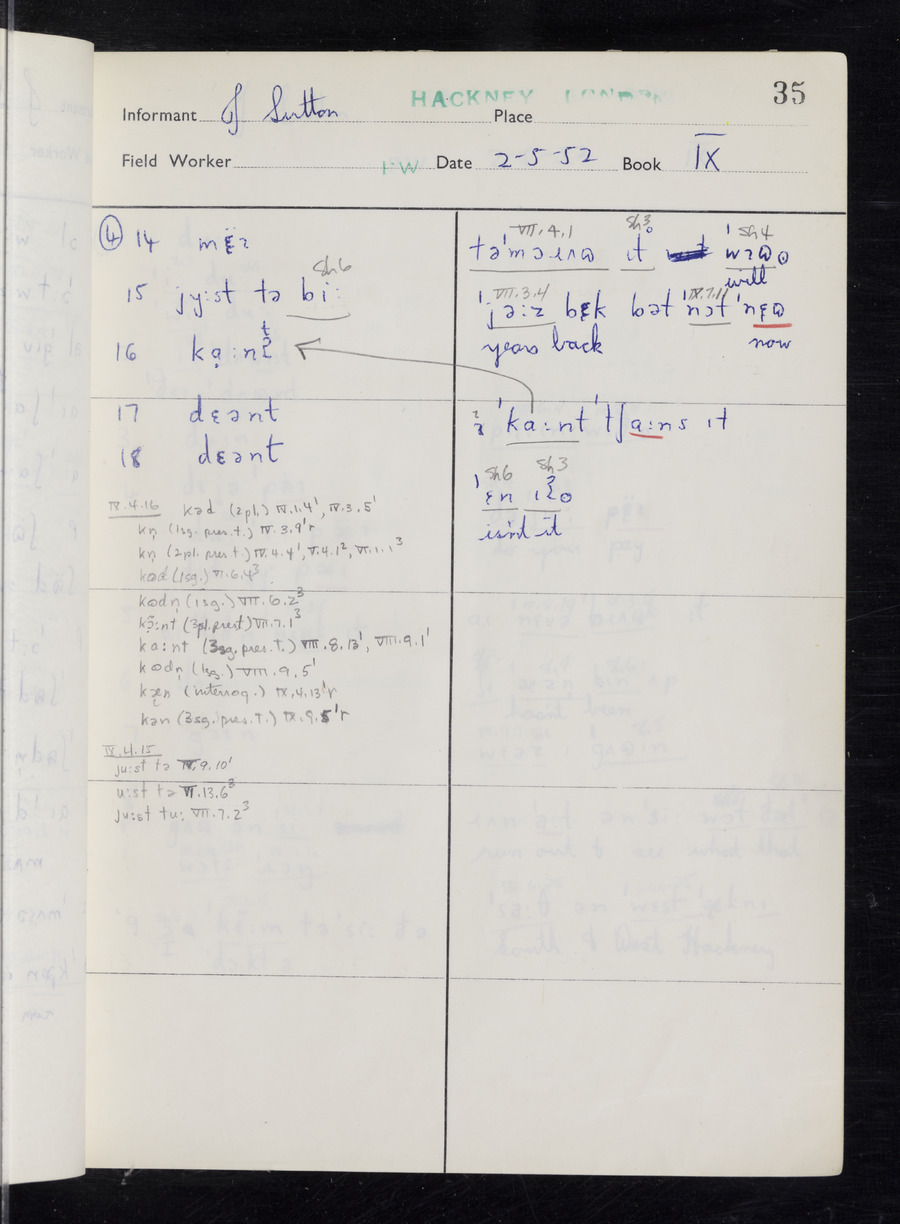 35
HACKNEY LONDON
Informant J Sutton Place
Field Worker FW Date 2-5-52 Book IX
④ 14 mɛ̈ɪ
Sh6
15 jʏ:st tə bi:
16
17 dɛənt
18 dɛənt
IV.4.16 kəd (2pl.) IV.1.4¹, IV.3.5¹
kn̩ (1sg. pres. t.) IV.3.9¹r
kn̩ (2pl. pres t.) IV.4.4¹, V.4.1², VI.1.1³
kɷd (1sg.) VI.6.4³
kɷdn̩ (1sg.) VII.6.2³
(3pl. pres t) VII.7.1³
ka:nt (3sg. pres. T.) VIII.8.13¹, VIII.9.1¹
kɷdn̩ (1sg.) VIII.9.5¹
(interrog.) IX.4.13¹r
kən (3sg. pres. T.) IX.9.5¹r
IV.4.15
ju:st tə IV.9.10¹
u:st tə VI.13.6³
ju:st tu: VII.7.2³
VII.4.1 Sh3 Sh4
təˈmɔɪɹɷ ɪt
will
VII.3.4 IX.7.11
ˈjə:z bɛk bət ˈnɔt ˈnɛɷ
years back now
ˈka:nt ˈtʃa:ns ɪt
Sh6 Sh3
isn't it